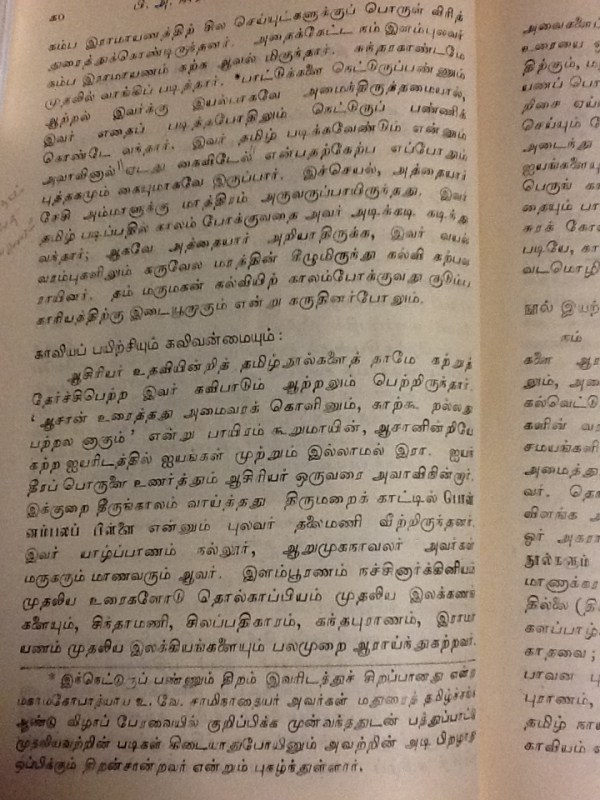 ௧௦
பி. அ.
கம்ப இராமாயணத்திற் சில செய்யுட்களுக்குப் பொருள் விரித்
துரைத்துக்கொண்டிருந்தனர். அதைக்கேட்ட நம் இளம்புலவர்
கம்ப இராமாயணம் கற்க ஆவல் மிகுந்தார். சுந்தரகாண்டமே
முதலில் வாங்கிப் படித்தார். *பாட்டுக்களை நெட்டுருப்பண்ணும்
ஆற்றல் இவர்க்கு இயல்பாகவே அமைந்திருந்தமையால்,
இவர் எதைப் படித்தபோதிலும் நெட்டுருப் பண்ணிக்
கொண்டே வந்தார். இவர் தமிழ் படிக்கவேண்டும் என்னும்
அவாவினால் ஏடது கைவிடேல் என்பதற்கேற்ப எப்போதும்
புத்தகமும் கையுமாகவே இருப்பார். இச்செயல், அத்தையார்
சேசி அம்மாளுக்கு மாத்திரம் அருவருப்பாயிருந்தது. இவர்
தமிழ் படிப்பதில் காலம் போக்குவதை அவர் அடிக்கடி கடிந்து
வந்தார்; ஆகவே அத்தையார் அறியாதிருக்க, இவர் வயல்
வரம்புகளிலும் கருவேல மரத்தின் கீழுமிருந்து கல்வி கற்பவ
ராயினர். தம் மருமகன் கல்வியிற் காலம்போக்குவது குடும்ப
காரியத்திற்கு இடையூறாகும் என்று கருதினர்போலும்.
காவியப் பயிற்சியும் கவிவன்மையும்:
ஆசிரியர் உதவியின்றித் தமிழ்நூல்களைத் தாமே கற்றுத்
தேர்ச்சிபெற்ற இவர் கவிபாடும் ஆற்றலும் பெற்றிருந்தார்.
‘ஆசான் உரைத்தது அமைவரக் கொளினும், காற்கூ றல்லது
பற்றல னாகும்’ என்று பாயிரம் கூறுமாயின், ஆசானின்றியே
கற்ற ஐயரிடத்தில் ஐயங்கள் முற்றும் இல்லாமல் இரா. ஐயர்
தீரப் பொருளை உணர்த்தும் ஆசிரியர் ஒருவரை அவாவிநின்றார்.
இக்குறை தீருங்காலம் வாய்த்தது திருமறைக் காட்டில் பொன்
னம்பலப் பிள்ளை என்னும் புலவர் தலைமணி வீற்றிருந்தனர்.
இவர் யாழ்ப்பாணம் நல்லூர், ஆறுமுகநாவலர் அவர்கள்
மருகரும் மாணவரும் ஆவர். இளம்பூரணம் நச்சினார்க்கினியம்
முதலிய உரைகளோடு தொல்காப்பியம் முதலிய இலக்கணங்
களையும், சிந்தாமணி, சிலப்பதிகாரம், கந்தபுராணம், இராமா
யணம் முதலிய இலக்கியங்களையும் பலமுறை ஆராய்ந்துகற்றவர்.
* இக்கெட்டுருப் பண்ணும் திறம் இவரிடத்துச் சிறப்பானது என்று
மகாமகோபாத்யாய உ. வே. சாமிநாதையர் அவர்கள் மதுரைத் தமிழ்ச்சங்க
ஆண்டு விழாப் பேரவையில் குறிப்பிக்க முன்வந்ததுடன் பத்துப்பாட்டு
முதலியவற்றின் படிகள் கிடையாதுபோயினும் அவற்றின் அடி பிறழாது
ஒப்பிக்கும் திறன்சான்றவர் என்றும் புகழ்ந்துள்ளார்.
அவைகளைப்
உரையை
திற்கும்,
யணப்
றிசை
செய்யும்
அடைந்து
ஐயங்களையு
பெருங்
தையும்
சுரக்
படியே,
வடமொழி
நூல் இயற்
நம்
களை
லும்,
கல்வெட்டு
களின்
சமயங்களி
அமைத்து
வர்.
விளங்க
ஓர்
நூல்களும்
மாணாக்கர
தில்லை
களப்பாழ்
காதவை;
பாவன
புராணம்,
தமிழ்
காவியம்